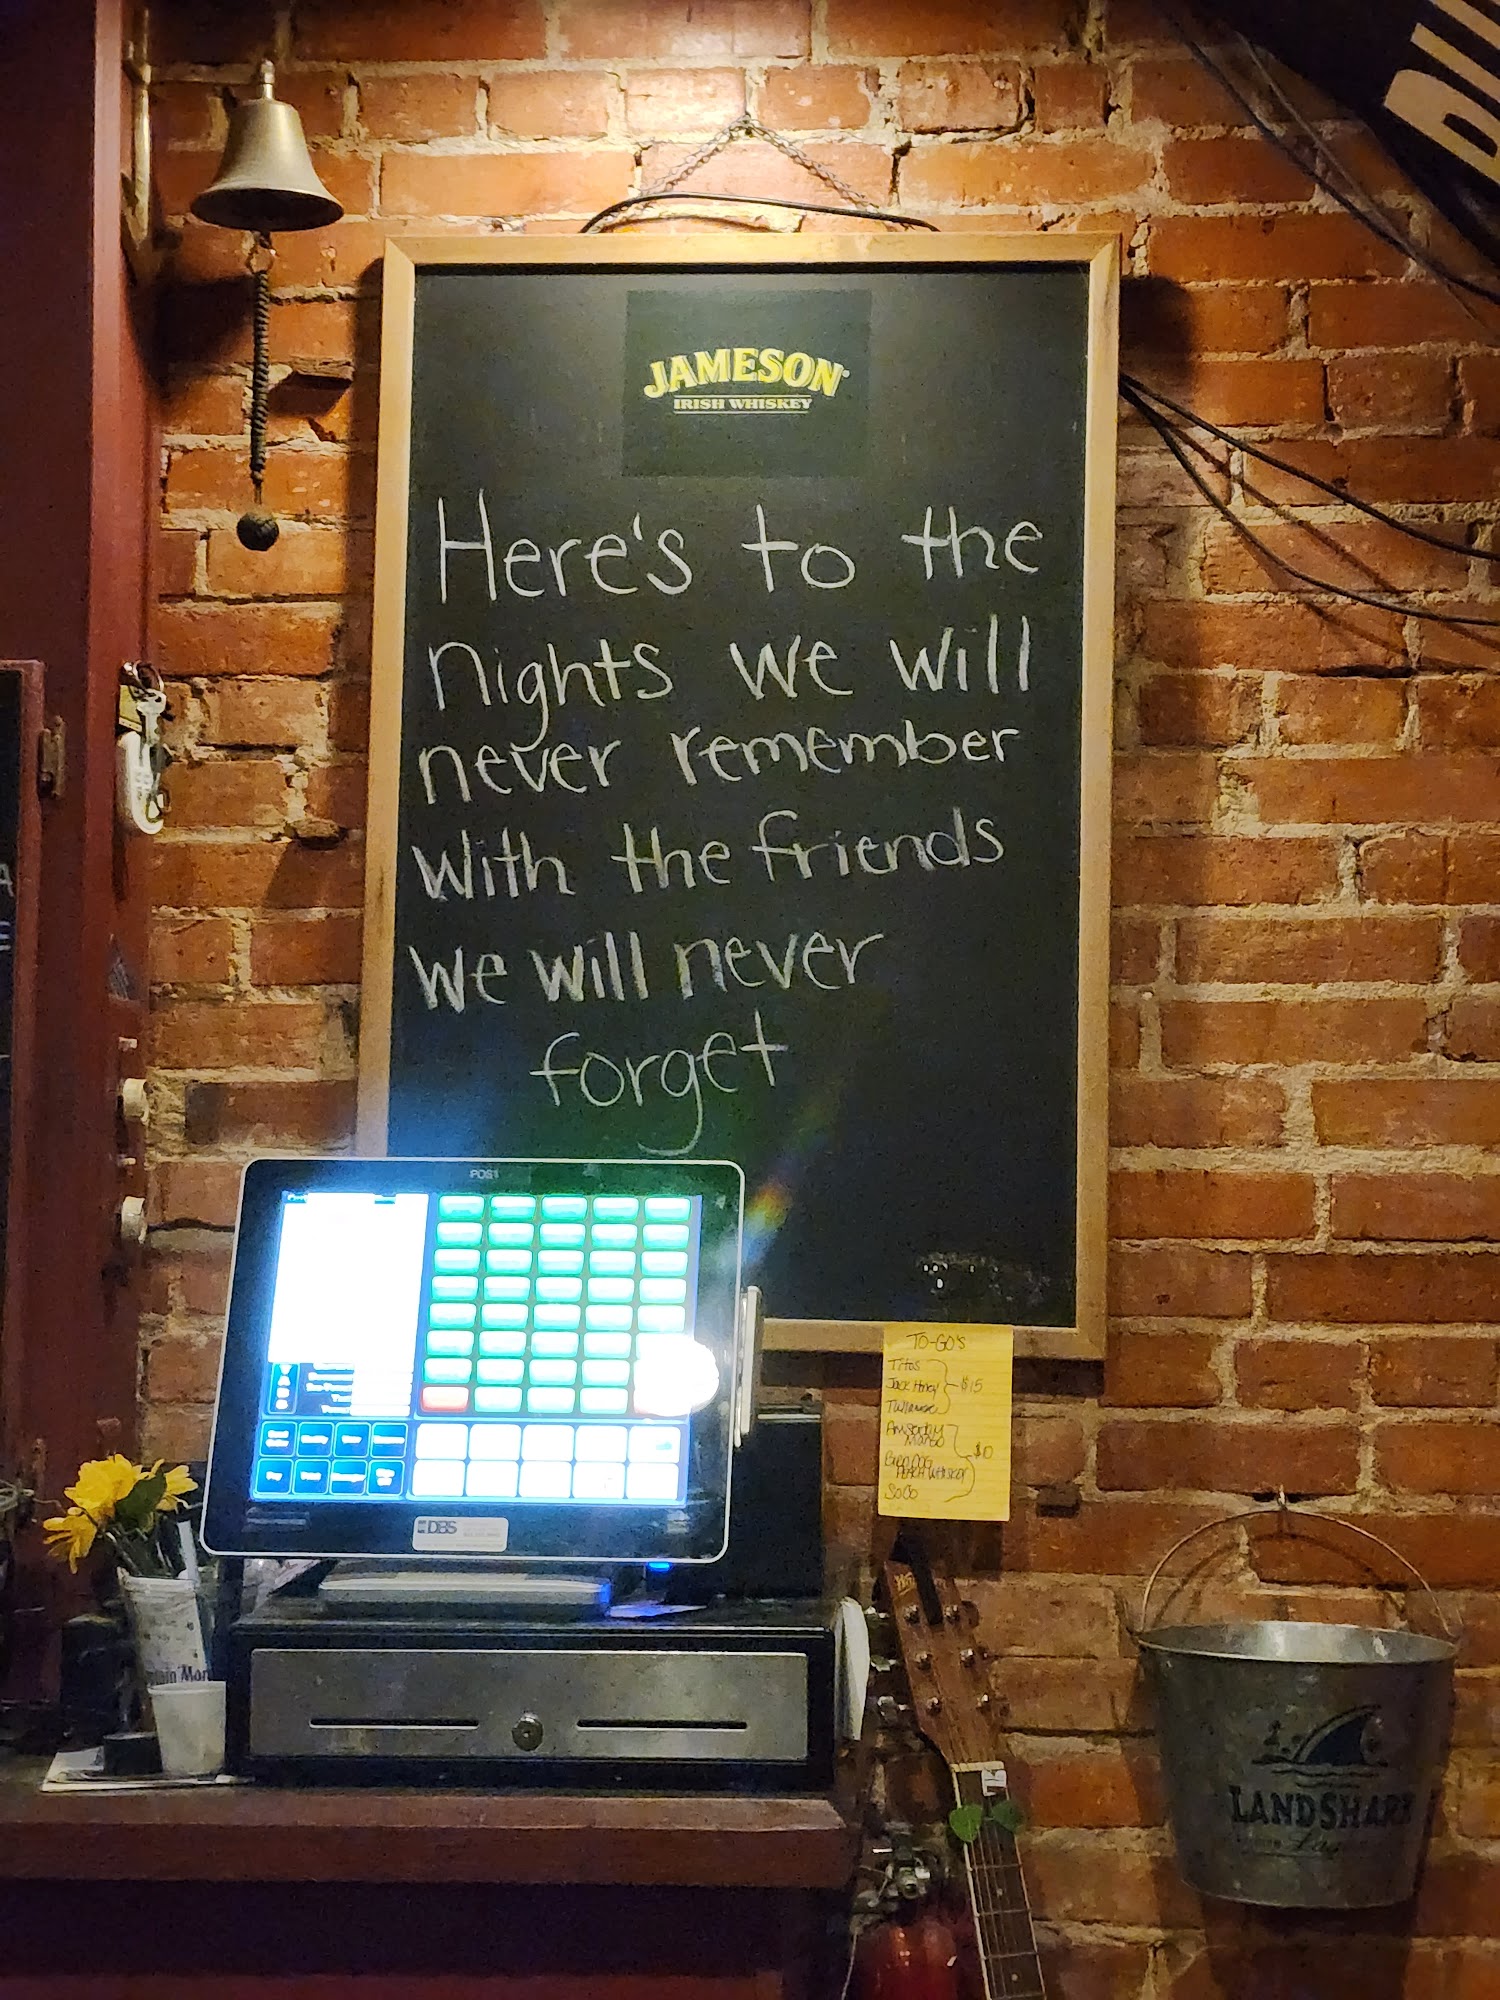 JAMESON
IRISH WHISKEY
Here's to the
nights we will
never remember
with the friends
we will never
forget
POS1
DBS
TO-GO'S
Titos
Jack Honey
$15
Mango
$10
Bird Dog
Peach Whiskey
SoCo
LANDSHARK
Lager